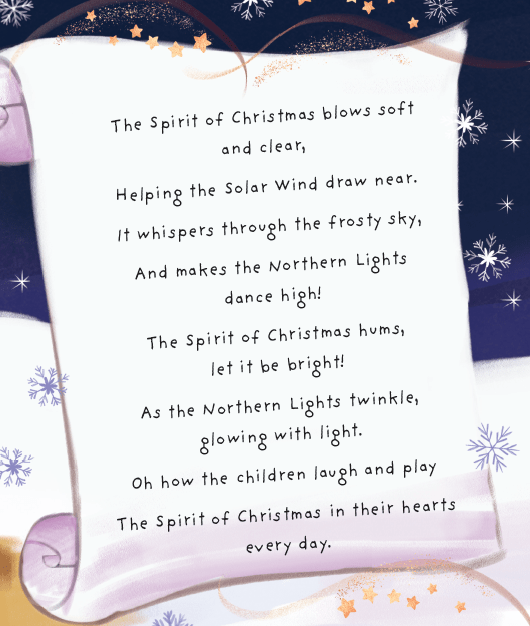 The Spirit of Christmas blows soft
and clear,
Helping the Solar Wind draw near.
It whispers through the frosty sky,
And makes the Northern Lights
dance high!
The Spirit of Christmas hums,
let it be bright!
As the Northern Lights twinkle,
glowing with light.
Oh how the children laugh and play
The Spirit of Christmas in their hearts
every day.